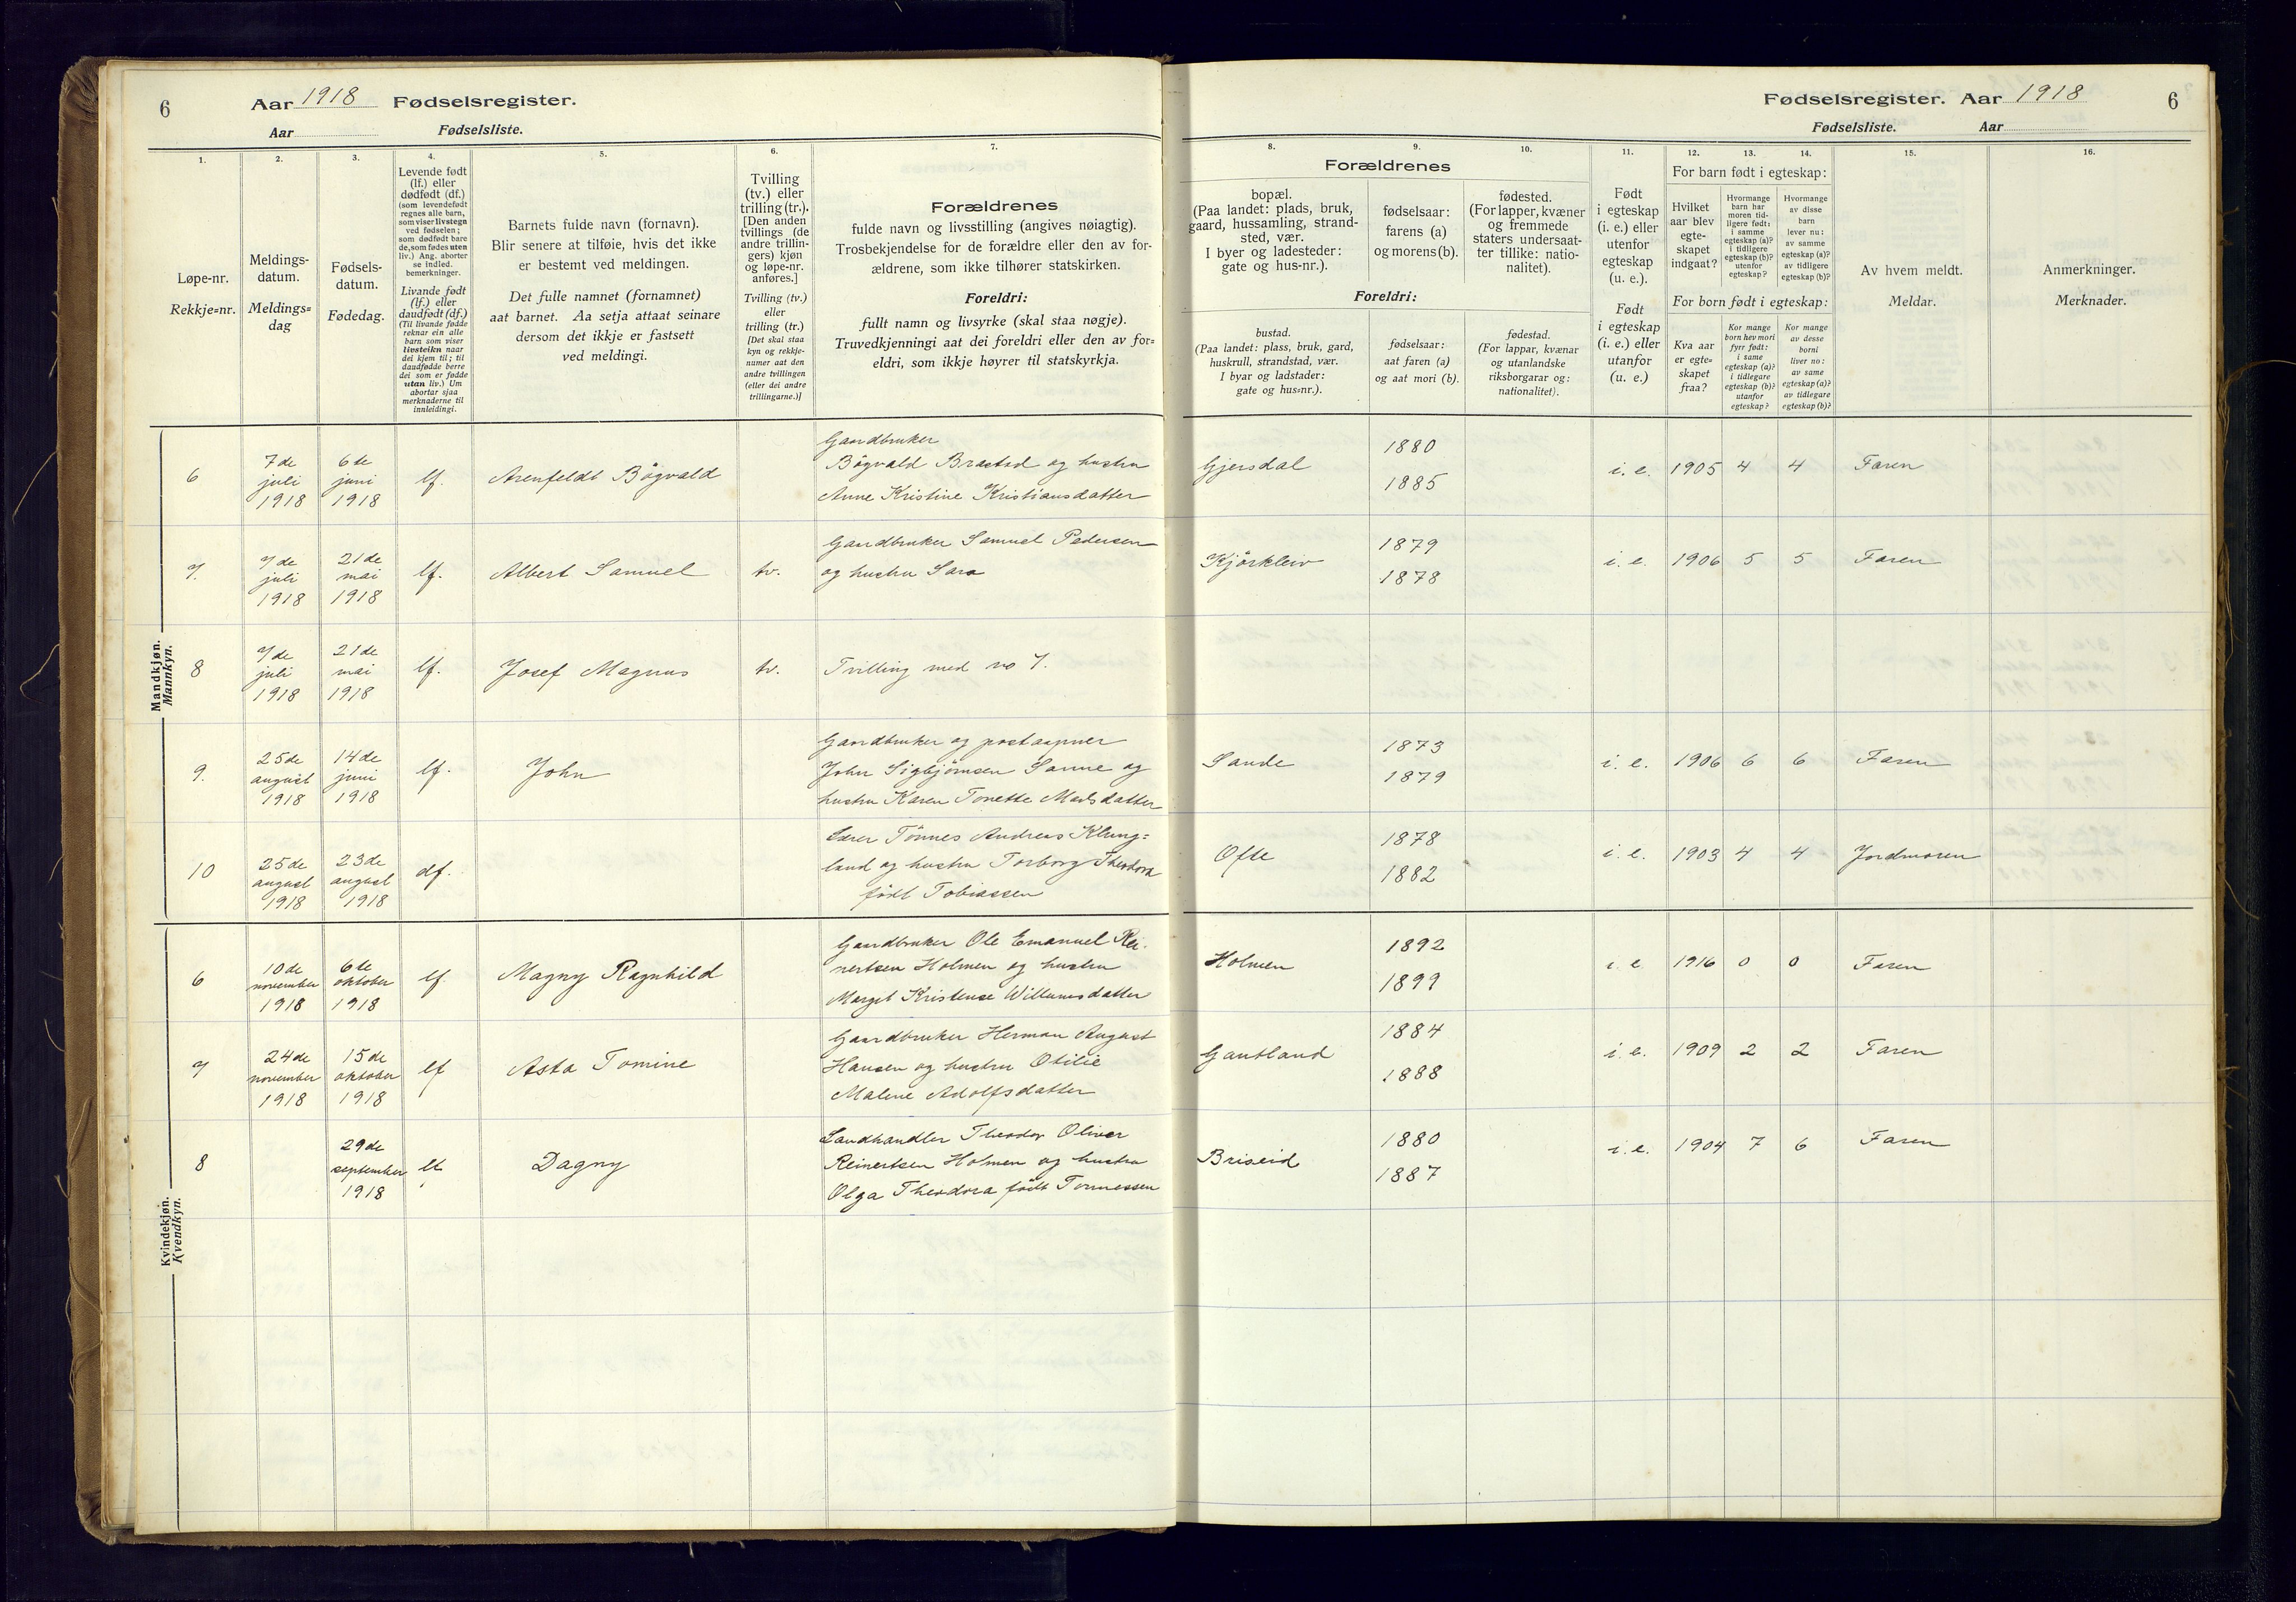 6
Aar 1918 Fødselsregister.
Aar Fødselsliste.
Fødselsregister. Aar 1918
6
Fødselsliste. Aar
1. 2. 3. 4. 5. 6. 7. 8. 9. 10. 11. 12. 13. 14. 15. 16.
Løpe-nr.
Rekkje=nr.
Meldings-
datum.
Meldings=
dag
Fødsels-
datum.
Fødedag.
Levende født
(lf.) eller
dødfødt (df.)
(som levendefødt
regnes alle barn,
som viser livstegn
ved fødselen;
som dødfødt bare
de, som fødes uten
liv.) Ang. aborter
se indled.
bemerkninger.
Livande født
(lf.) eller
daudfødt (df.)
(Til livande fødde
reknar ein alle
barn som viser
livsteikn naar
dei kjem til; til
daudfødde berre
dei som er fødde
utan liv.) Um
abortar sjaa
merknaderne til
innleidingi.
Barnets fulde navn (fornavn).
Blir senere at tilføie, hvis det ikke
er bestemt ved meldingen.
Det fulle namnet (fornamnet)
aat barnet. Aa setja attaat seinare
dersom det ikkje er fastsett
ved meldingi.
Tvilling
(tv.) eller
trilling (tr.).
[Den anden
tvillings (de
andre trillin-
gers) kjøn
og løpe-nr.
anføres.]
Tvilling (tv.)
eller
trilling (tr.)
[Det skal staa
kyn og rekkje-
numer aat den
andre tvillingen
(eller dei andre
trillingarne.)]
Forældrenes
fulde navn og livsstilling (angives nøiagtig).
Trosbekjendelse for de forældre eller den av for-
ældrene, som ikke tilhører statskirken.
Foreldri:
fullt namn og livsyrke (skal staa nøgje).
Truvedkjenningi aat dei foreldri eller den av for=
eldri, som ikkje høyrer til statskyrkja.
Forældrenes
bopæl.
(Paa landet: plads, bruk,
gaard, hussamling, strand-
sted, vær.
I byer og ladesteder:
gate og hus-nr.).
fødselsaar:
farens (a)
og morens (b).
fødested.
(For lapper, kvæner
og fremmede
staters undersaat-
ter tillike: natio-
nalitet).
Foreldri:
bustad.
(Paa landet: plass, bruk, gard,
huskrull, strandstad, vær.
I byar og ladstader:
gate og hus=nr.).
fødselsaar:
aat faren (a)
og aat mori (b).
fødestad.
(For lappar, kvænar
og utanlandske
riksborgarar og:
nationalitet).
Født
i egteskap
(i. e.) eller
utenfor
egteskap
(u. e.).
Født
i egteskap
(i. e.) eller
utanfor
(u. e.)
For barn født i egteskap:
Hvilket
aar blev
egte-
skapet
indgaat?
Hvormange
barn har
moren tid-
ligere født:
i samme
egteskap (a)?
i tidligere
egteskap (b)?
utenfor
egteskap?
Hvormange
av disse
barn
lever nu:
av samme
egteskap (a)?
av tidligere
egteskap (b)?
For born født i egteskap:
Kva aar
er egte=
skapet
fraa?
Kor mange
born hev mori
fyrr født:
i same
egteskap (a)?
i tidlegare
egteskap (b)?
utanfor
egteskap?
Kor mange
av desse
borni
liver no:
av same
egteskap (a)?
av tidlegare
egteskap (b)?
Av hvem meldt.
Meldar.
Anmerkninger.
Merknader.
Mandkjøn.
Mannkyn.
6 7de juli 1918 6te juni 1918 lf. Arenfeldt Bôgvald
Gaardbruker
Bôgvald Brastad og hustru
Anne Kristine Kristiansdatter
Gjersdal 1880 1885 i. e. 1905 4 4 Faren
7. 7de juli 1918 21de mai 1918 lf. Albert Samuel tv.
Gaardbruker Samuel Pedersen
og hustru Sara
Kjôrkleiv 1879 1878 i. e. 1906 5 5 Faren
8 7de juli 1918 21de mai 1918 lf. Josef Magnus tv. Tvilling med no 7.
9. 25de august 1918 14de juni 1918 lf. John
Gaardbruker og postaapner
John Sigbjörnsen Sanne og
hustru Karen Tonette Madsdatter
Sande 1873 1879 i. e. 1906 6 6 Faren
10 25de august 1918 23de august 1918 df.
Lærer Tônnes Andreas Klung=
land og hustru Torborg Theodora
född Tobiassen
Ofte 1878 1882 i. e. 1903 4 4 Jordmoren
Kvindekjøn.
Kvendkyn.
6 10de november 1918 6te oktober 1918 lf Magny Ragnhild
Gaardbruker Ole Emanuel Rei-
nertsen Holmen og hustru
Marget Kristense Willumsdatter
Holmen 1892 1899 i e 1916 0 0 Faren
7 24de november 1918 15de oktober 1918 lf Asta Tomine
Gaardbruker Herman August
Hansen og hustru Otilie
Malene Adolfsdatter
Gautland 1884 1888 i. e. 1909 2 2 Faren
8 29de september 1918 lf. Dagny
Landhandler Theodor Oliver
Reinertsen Holmen og hustru
Olga Theodora född Tonnessen
Briseid 1880 1887 i. e. 1904 7 6 Faren